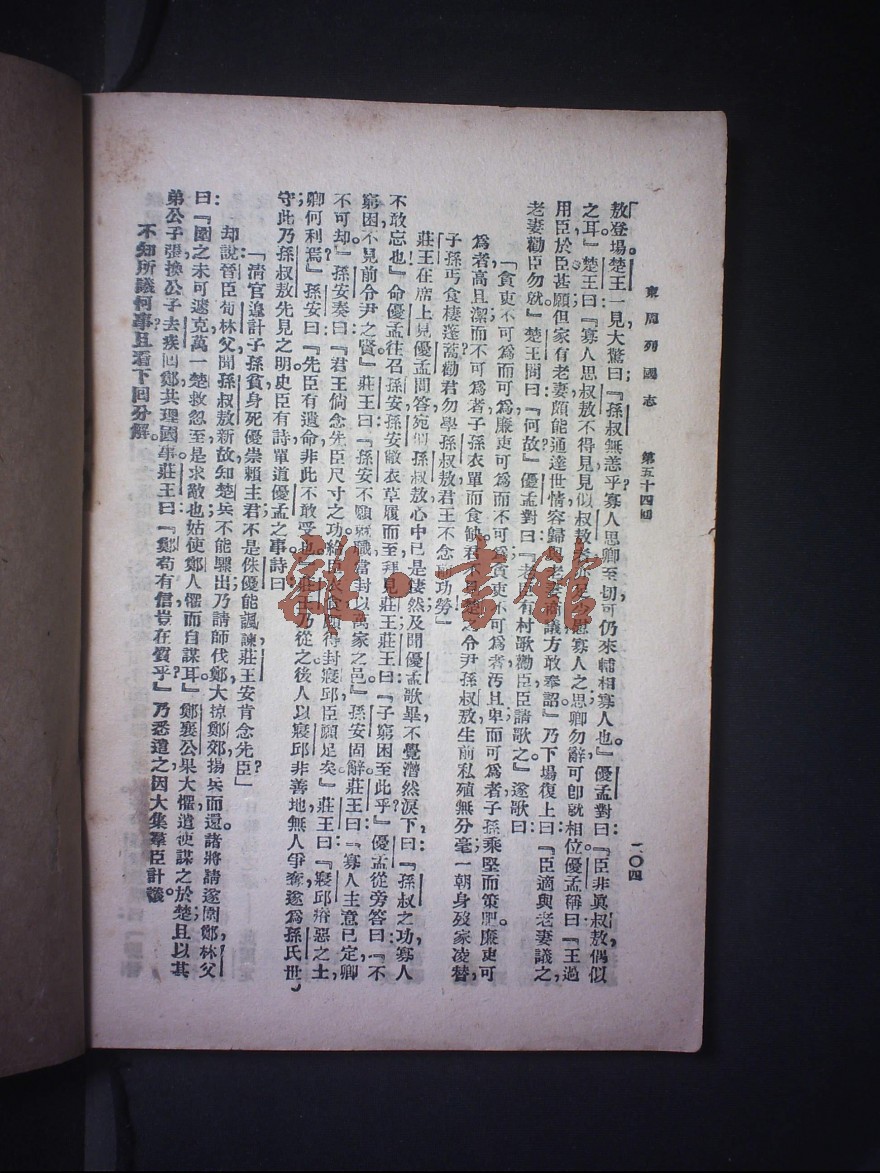 東周列國志 第五十四回 二〇四
敖登場。」楚王一見大驚：「孫叔無恙乎？寡人思卿至切，可仍來輔相寡人也。」優孟對曰：『臣非眞叔敖，偶似
之耳。』楚王曰：『寡人思叔敖不得見，見似叔敖者，亦足少慰寡人之思。卿勿辭，可卽就相位。』優孟稱曰：『王過
用臣，於臣甚願。但家有老妻，頗能通達世情，容歸與老妻商議，方敢奉詔。』乃下場，復上曰：『臣適與老妻議之，
老妻勸臣勿就。』楚王問曰：『何故？』優孟對曰：『老妻有村歌勸臣，臣請歌之。』遂歌曰：
「貪吏不可爲而可爲，廉吏可爲而不可爲。貪吏不可爲者，汚且卑；而可爲者，子孫乘堅而策肥。廉吏可
爲者，高且潔；而不可爲者，子孫衣單而食缺。君不見楚之令尹孫叔敖，生前私殖無分毫，一朝身歿家凌替，
子孫丐食棲蓬蒿。勸君勿學孫叔敖，君王不念前功勞！」
莊王在席上見優孟問答，宛似孫叔敖，心中已是悽然；及聞優孟歌畢，不覺潸然淚下曰：『孫叔之功，寡人
不敢忘也！』命優孟往召孫安。孫安敝衣草履而至，拜見莊王。莊王曰：『子窮困至此乎？』優孟從旁答曰：『不
窮困，不見前令尹之賢。』莊王曰：『孫安不願就職，當封以萬家之邑。』孫安固辭。莊王曰：『寡人主意已定，卿
不可却。』孫安奏曰：『君王倘念先臣尺寸之功，給臣衣食，願得封寢邱，臣願足矣。』莊王曰：『寢邱瘠惡之土，
卿何利焉？』孫安曰：『先臣有遺命，非此不敢受也。』莊王乃從之。後人以寢邱非善地，無人爭奪，遂爲孫氏世
守；此乃孫叔敖先見之明。史臣有詩單道優孟之事。詩曰：
「清官遑計子孫貧，身死優崇賴主君。不是侏優能諷諫，莊王安肯念先臣？」
却說晉臣荀林父聞孫叔敖新故，知楚兵不能驟出，乃請師伐鄭，大掠鄭郊，揚兵而還。諸將請遂圍鄭，林父
曰：『圍之未可遽克，萬一楚救忽至，是求敵也。姑使鄭人懼而自謀耳。』鄭襄公果大懼，遣使謀之於楚，且以其
弟公子張換公子去疾囘鄭，共理國事。莊王曰：『鄭苟有信，豈在質乎？』乃悉遣之。因大集羣臣計議。
不知所議何事，且看下回分解。
雜·書館